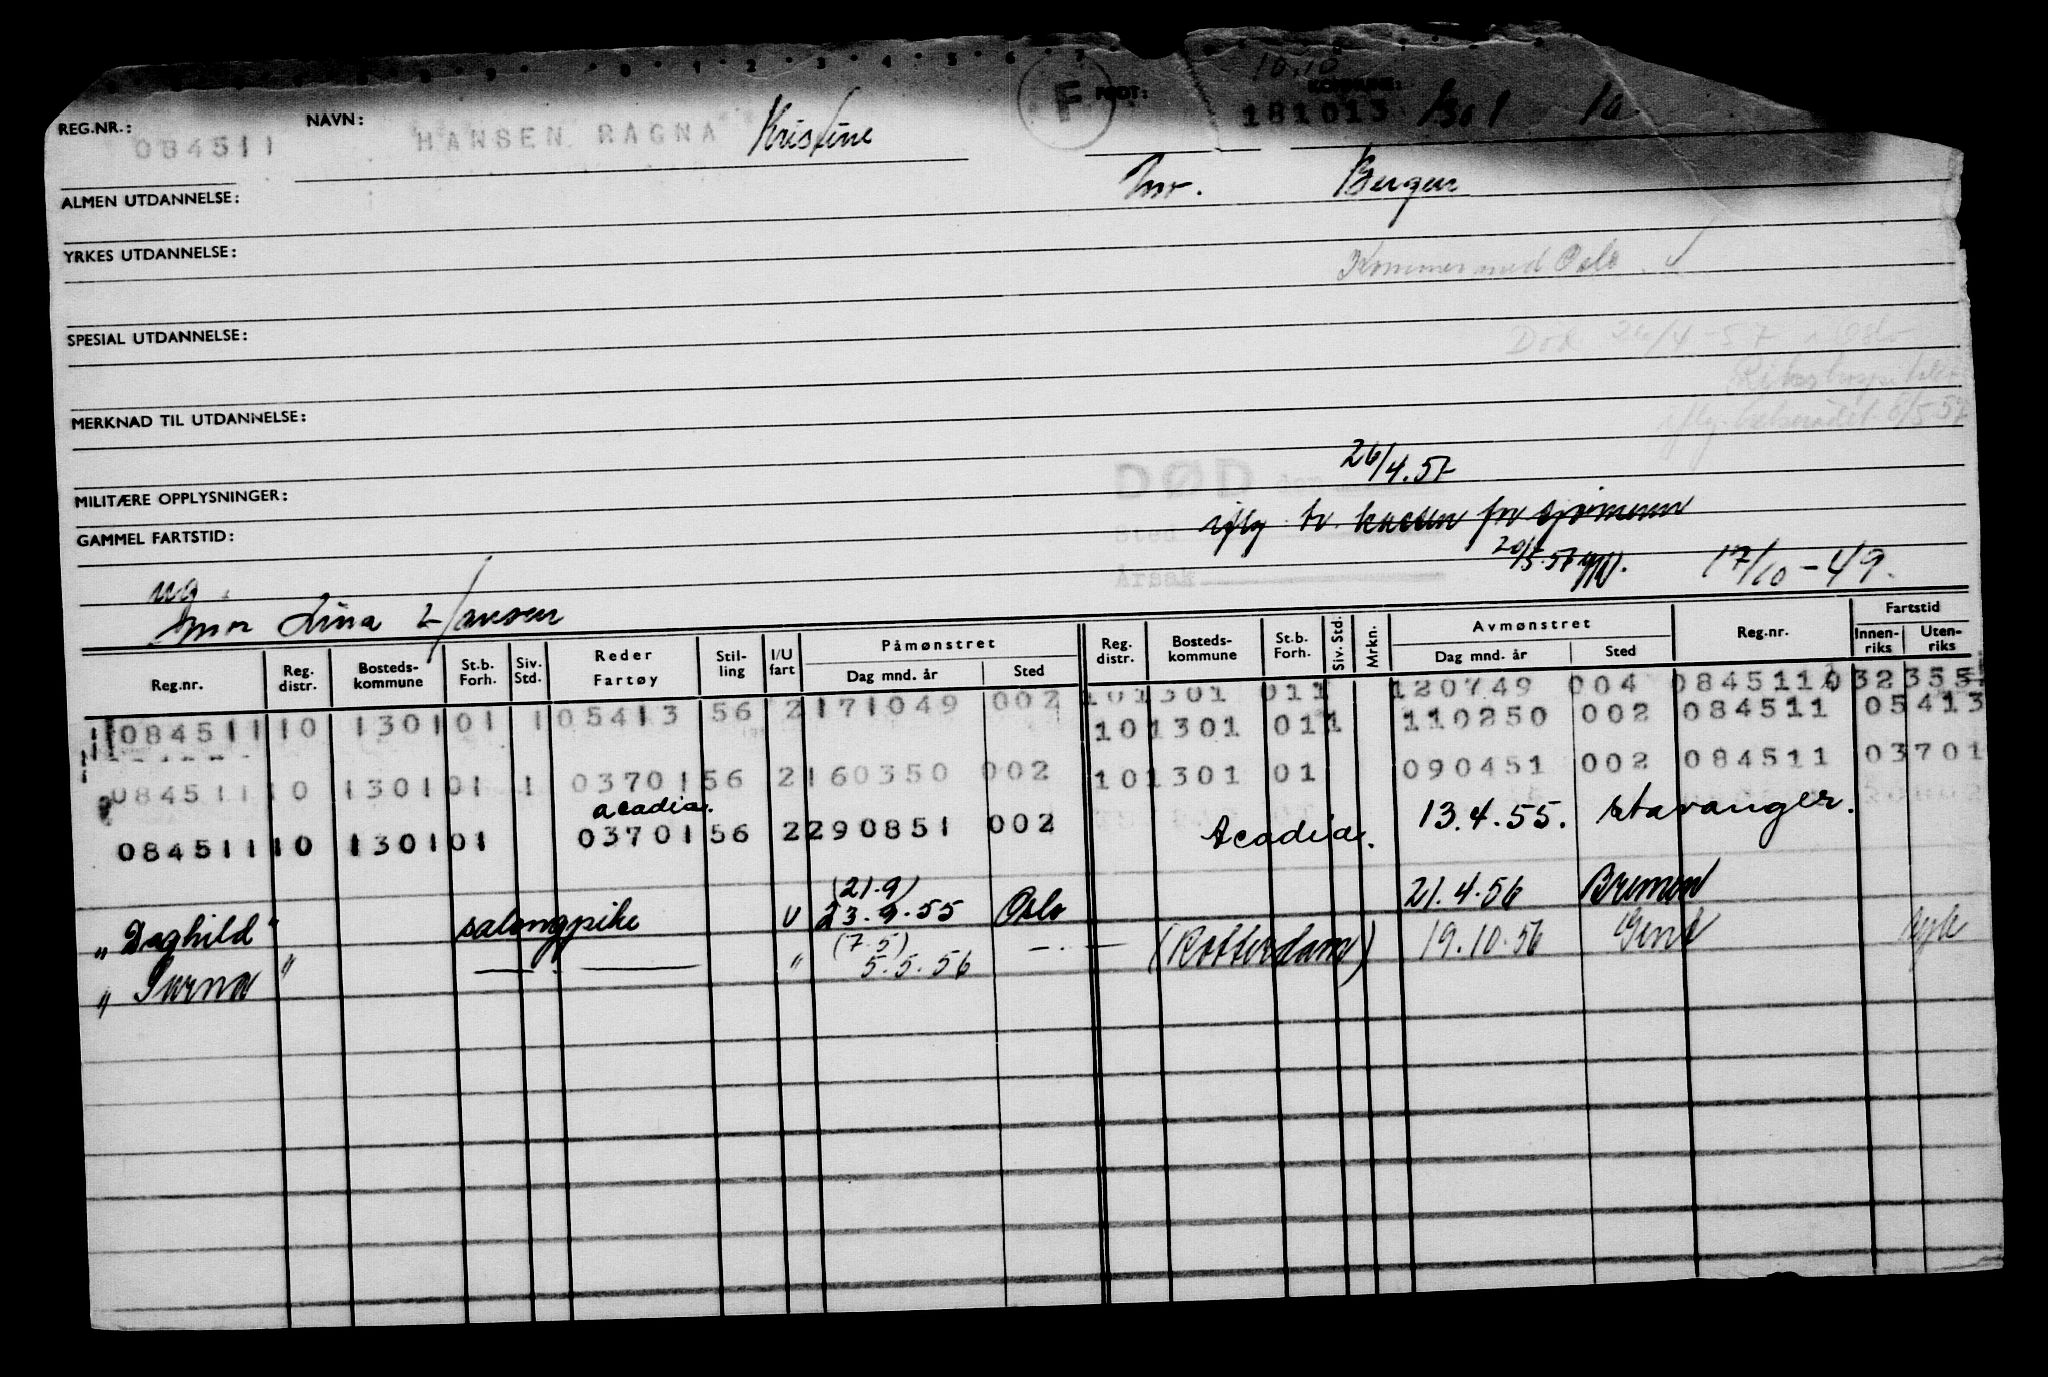 10.10
REG.NR.: 084511 NAVN: HANSEN RAGNA Kristine F FØDT: 181013 1301 10
Bergen
ALMEN UTDANNELSE:
YRKES UTDANNELSE: Kommer med Oslo
SPESIAL UTDANNELSE: Død 26/4-57 i Oslo
MERKNAD TIL UTDANNELSE: 6/5 57
26/4.57
MILITÆRE OPPLYSNINGER: DØD den
GAMMEL FARTSTID: Sted iflg. br. kassen for sjømenn
Årsak 20/5.57 17/10-49.
ug.
mor Lina Hansen
Reg.nr. Reg. distr. Bosteds-kommune St.b. Forh. Siv. Std. Reder Fartøy Stilling I/U fart Påmønstret Dag mnd. år Sted Reg. distr. Bosteds-kommune St.b. Forh. Siv. Std. Mrkn. Avmønstret Dag mnd. år Sted Reg.nr. Fartstid Innen-riks Uten-riks
10 1301 011 120749 004 084511 032 355
084511 10 1301 01 1 05413 56 2 171049 002 10 1301 011 110250 002 084511 05413
084511 10 1301 01 1 03701 56 2 160350 002 10 1301 01 090451 002 084511 03701
acadia.
084511 10 1301 01 03701 56 2 290851 002 Acadia. 13.4.55. Stavanger.
(21.9)
"Daghild" salongpike U 23.9.55 Oslo 21.4.56 Bremen
(7.5)
"Surna" — . — " 5.5.56 — . — (Rotterdam) 19.10.56 Gent syk